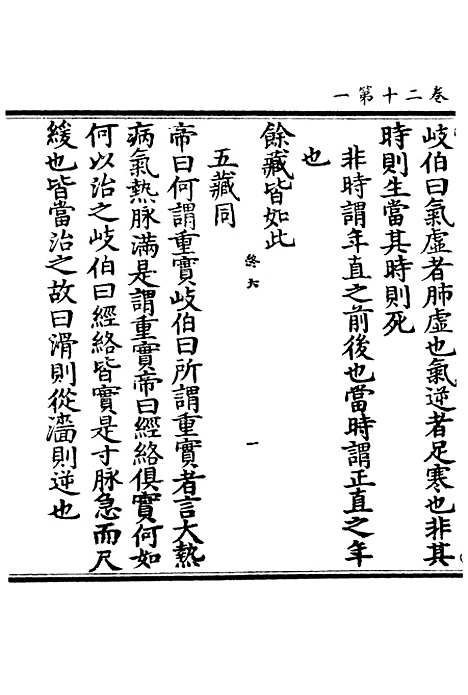 卷二十第一
岐伯曰氣虛者肺虛也氣逆者足寒也非其
時則生當其時則死
非時謂年直之前後也當時謂正直之年
也
餘藏皆如此
終六
一
五藏同
帝曰何謂重實岐伯曰所謂重實者言大熱
病氣熱脉滿是謂重實帝曰經絡俱實何如
何以治之岐伯曰經絡皆實是寸脉急而尺
緩也皆當治之故曰滑則從濇則逆也